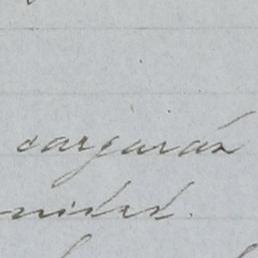 cargarán
nidad.